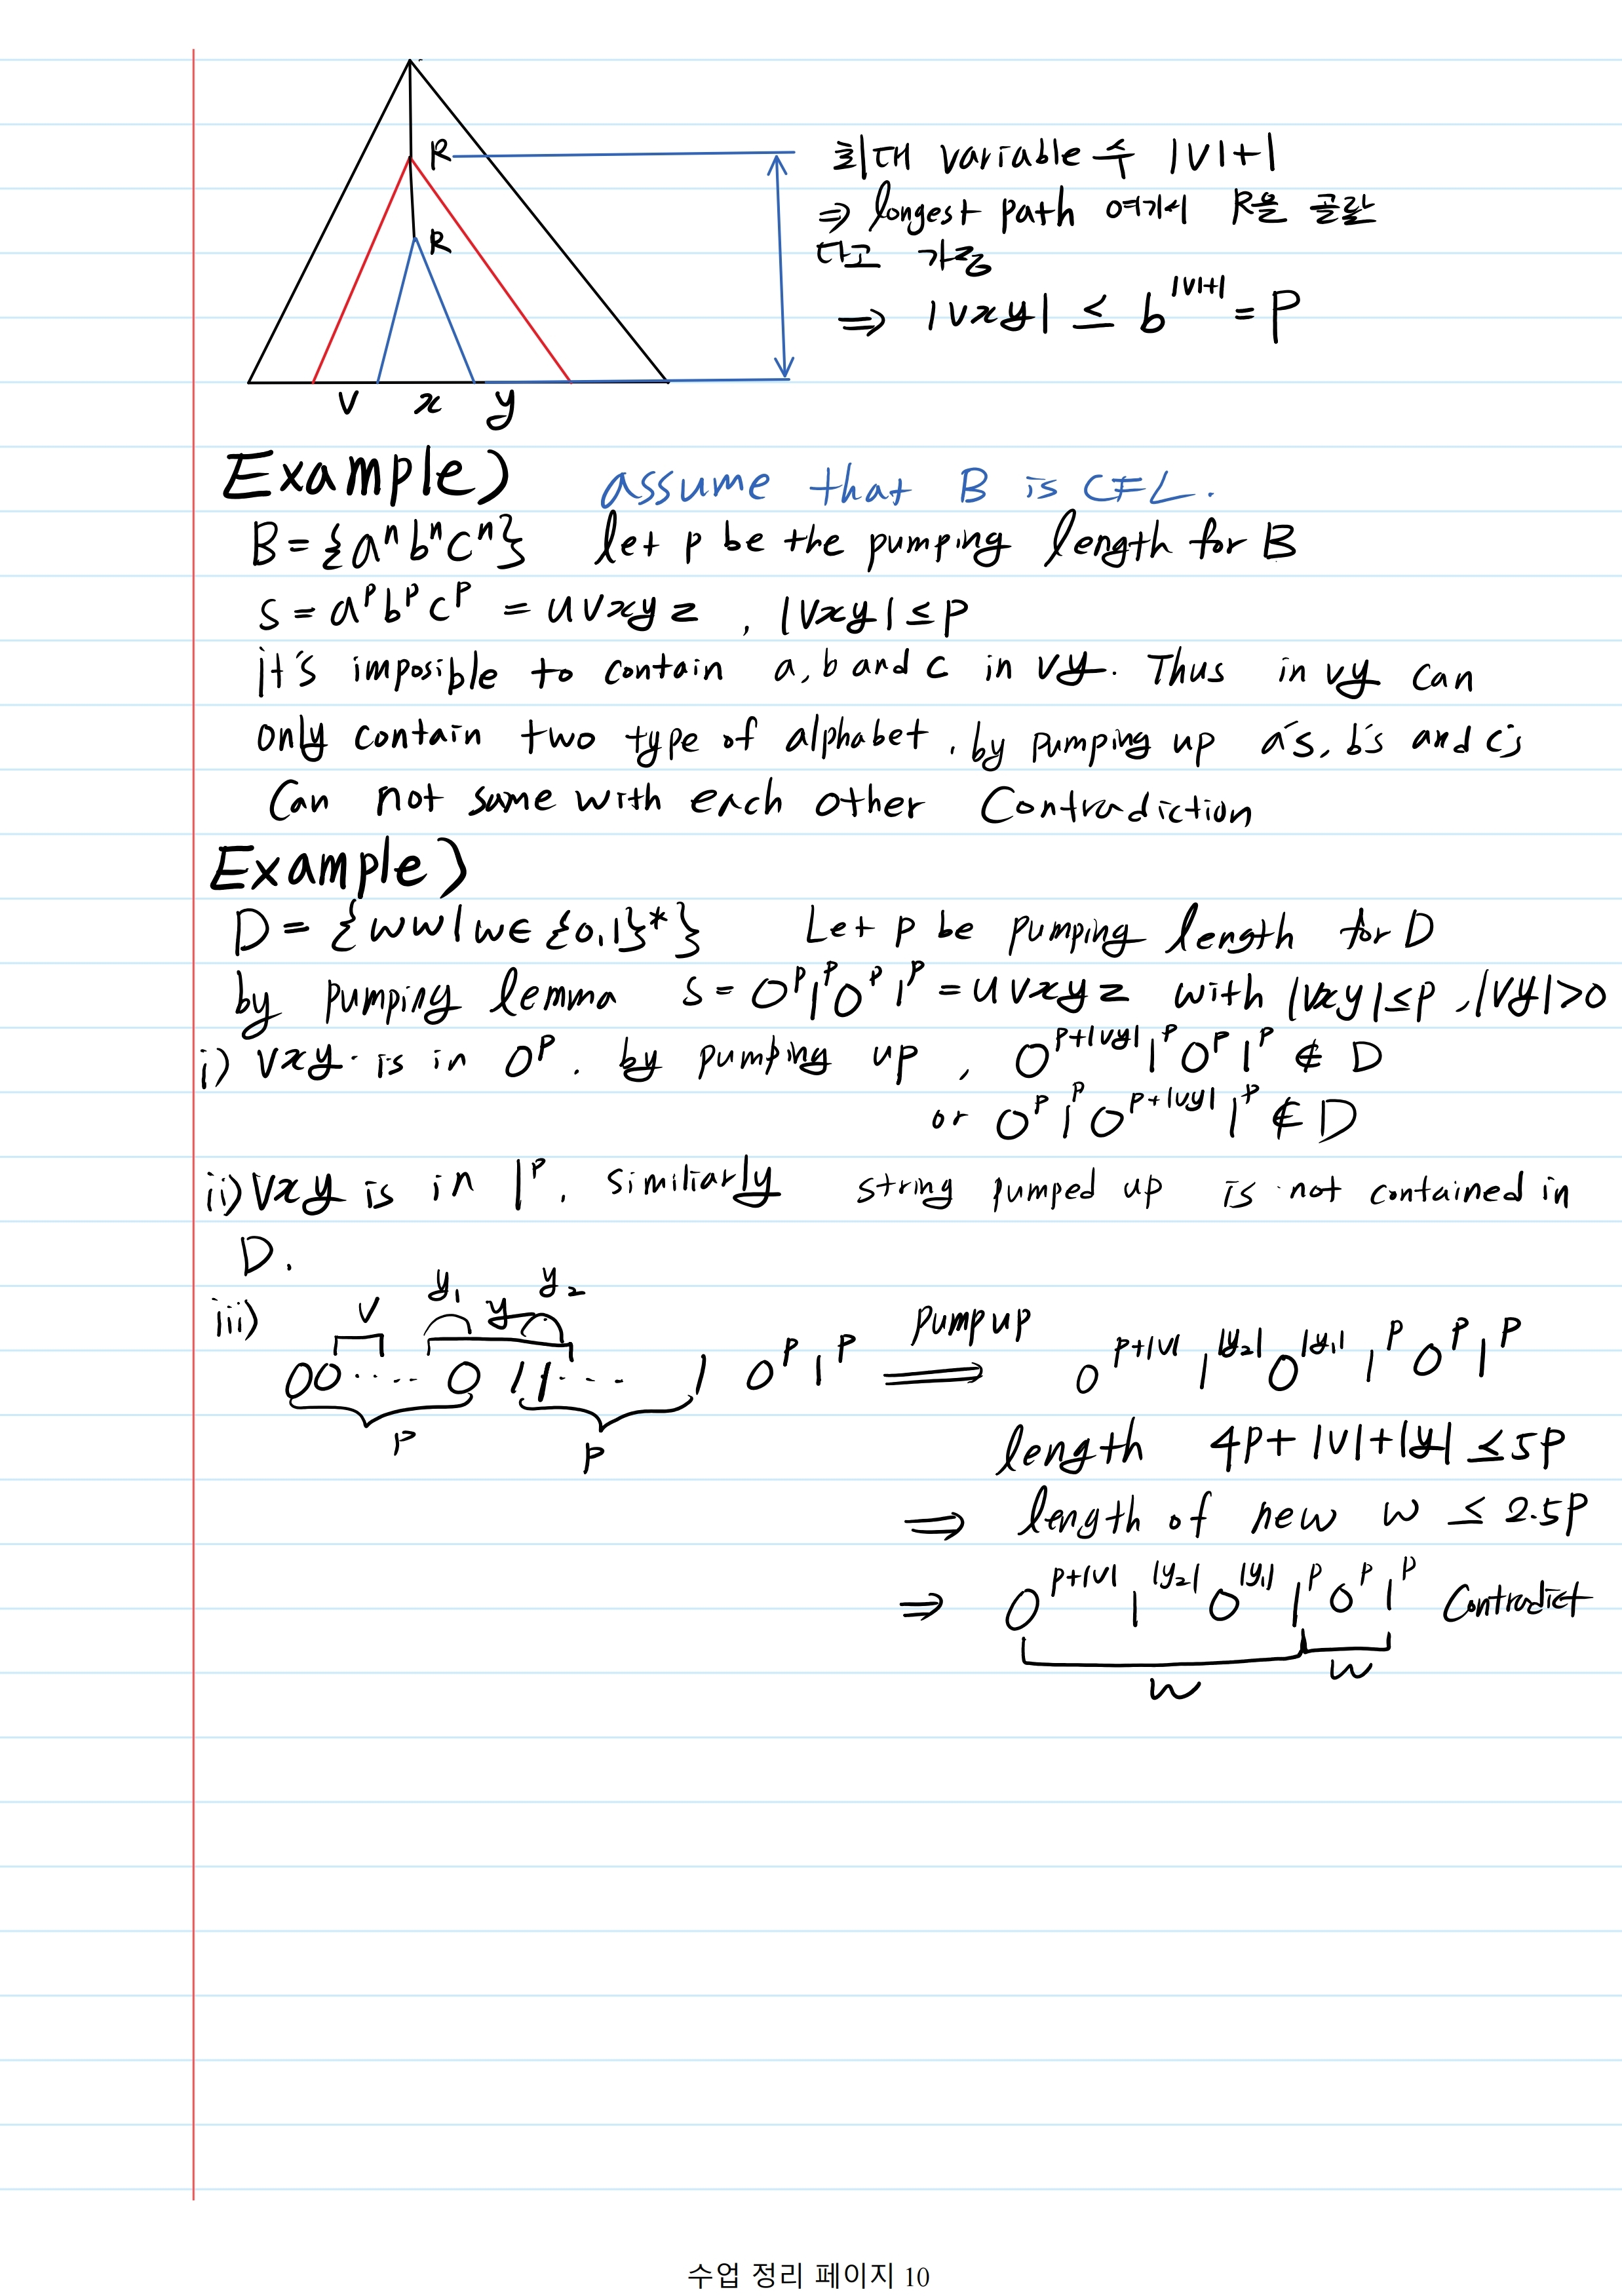 R
R
v x y
최대 variable 수 |V|+1
⇒ longest path 여기서 R을 골랐
다고 가정
⇒ |vxy| ≤ b^{|V|+1} = P
Example) assume that B is CFL.
B = {a^n b^n c^n} let p be the pumping length for B
s = a^p b^p c^p = uvxyz , |vxy| ≤ p
it's imposible to contain a, b and c in vy. Thus in vy can
only contain two type of alphabet. by pumping up a's, b's and c's
Can not same with each other Contradiction
Example)
D = {ww | w ∈ {0,1}*} Let p be pumping length for D
by pumping lemma s = 0^p 1^p 0^p 1^p = uvxyz with |vxy| ≤ p , |vy| > 0
i) vxy is in 0^p. by pumping up , 0^{p+|vy|} 1^p 0^p 1^p ∉ D
or 0^p 1^p 0^{p+|vy|} 1^p ∉ D
ii) vxy is in 1^p. similiarly string pumped up is not contained in
D.
iii) v y_1 y y_2
00 ..... 0 11 .... 1 0^p 1^p pump up ⟹ 0^{p+|v|} 1^{|y_2|} 0^{|y_1|} 1^p 0^p 1^p
p p
length 4p + |v| + |y| ≤ 5p
⇒ length of new w ≤ 2.5p
⇒ 0^{p+|v|} 1^{|y_2|} 0^{|y_1|} 1^p 0^p 1^p Contradict
w w
수업 정리 페이지 10